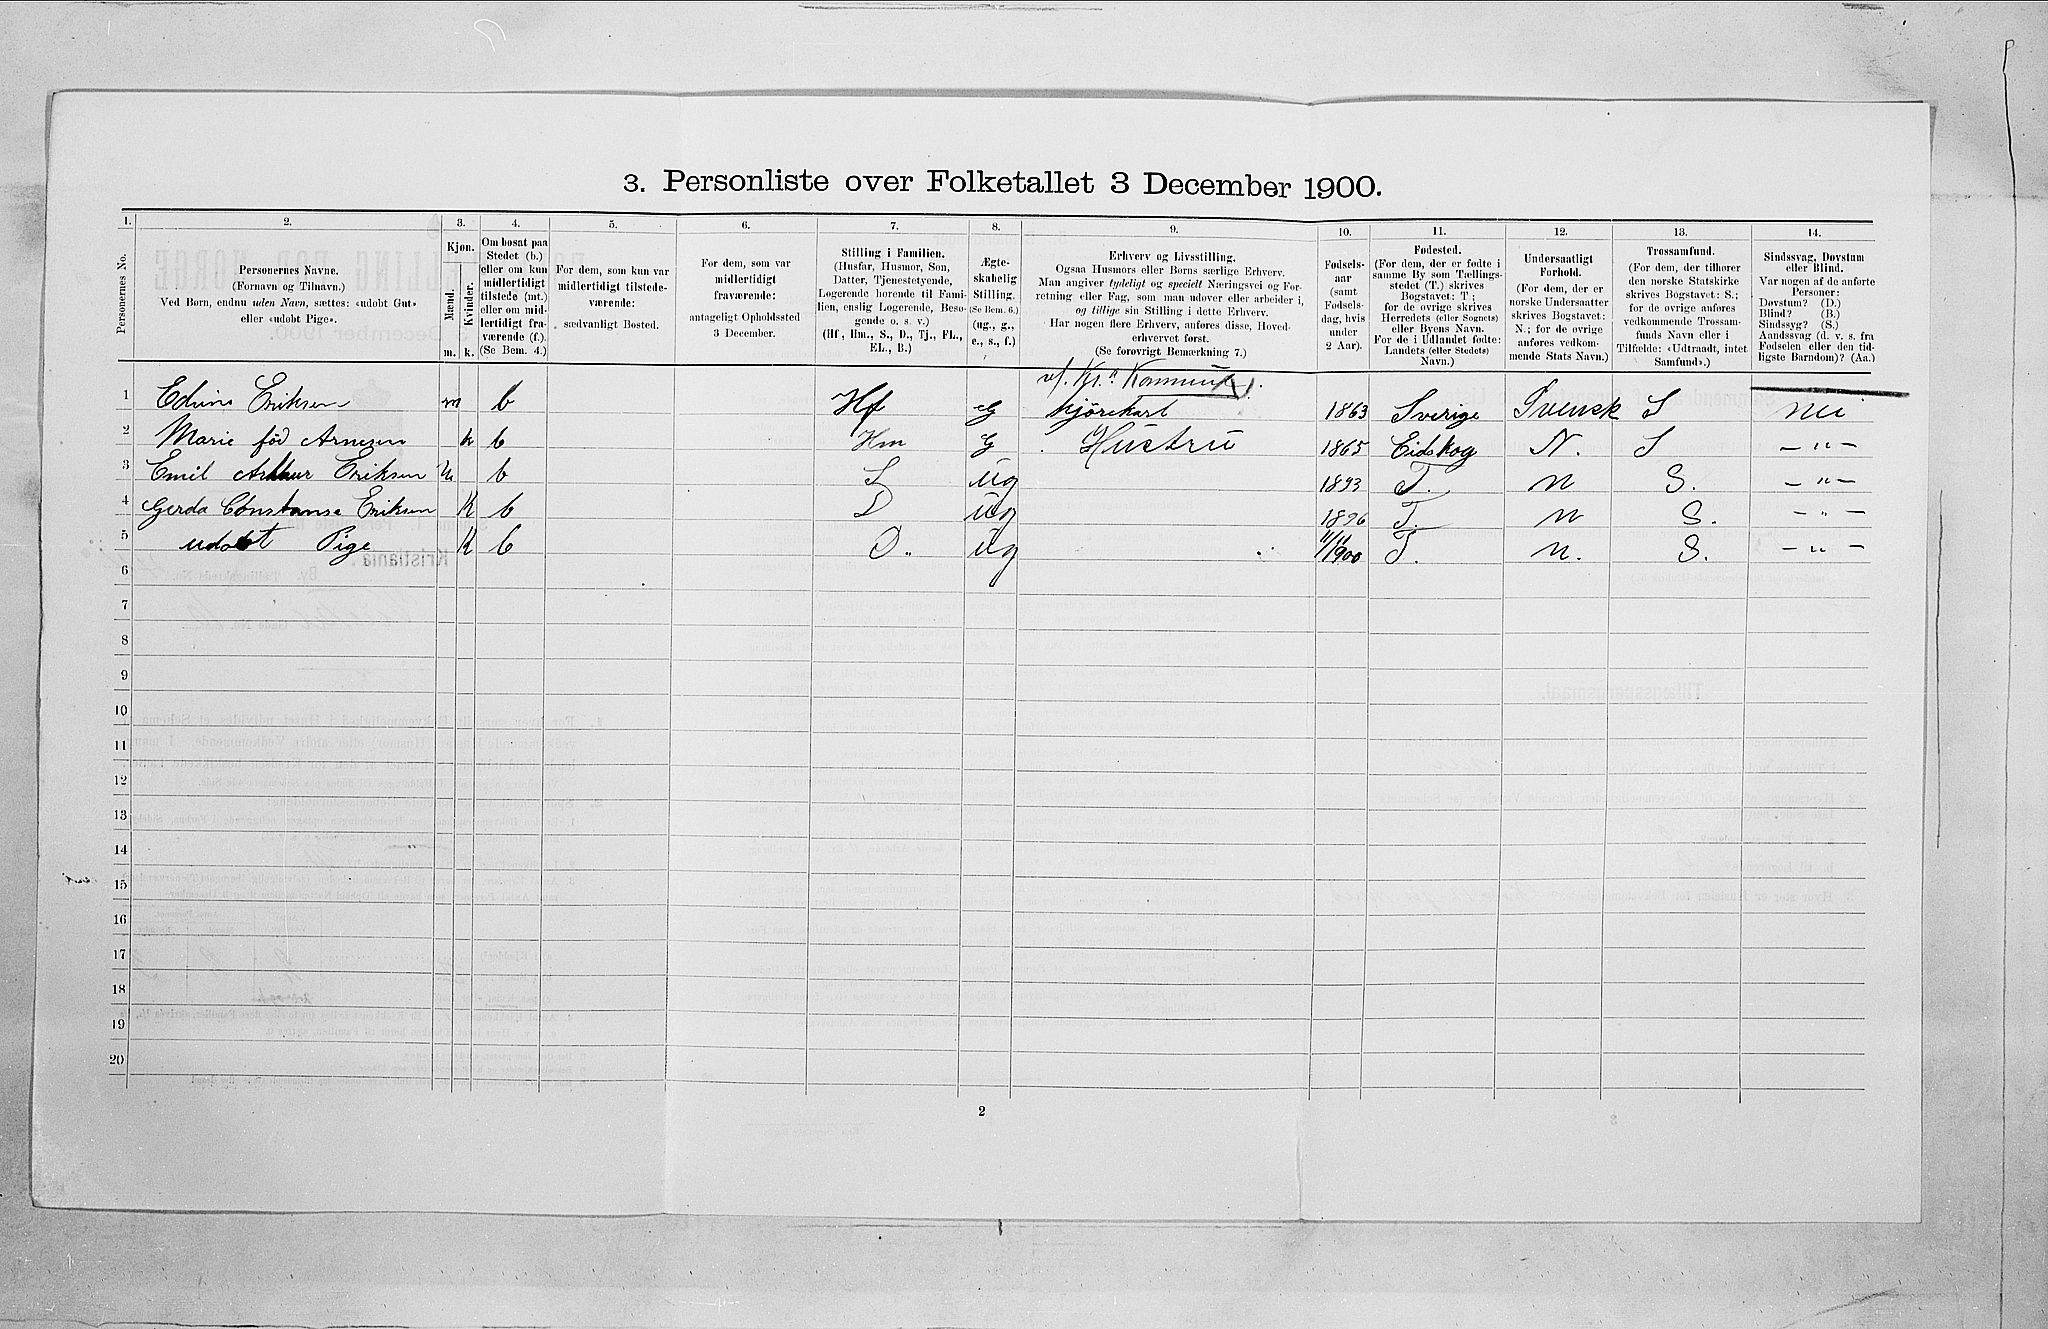 3. Personliste over Folketallet 3 December 1900.
1. 2. 3. 4. 5. 6. 7. 8. 9. 10. 11. 12. 13. 14.
Personernes No.
Personernes Navne.
(Fornavn og Tilnavn.)
Ved Børn, endnu uden Navn, sættes: «udøbt Gut»
eller «udøbt Pige».
Kjøn.
Mænd.
Kvinder.
m. k.
Om bosat paa
Stedet (b.)
eller om kun
midlertidigt
tilstede (mt.)
eller om mid-
lertidigt fra-
værende (f.).
(Se Bem. 4.)
For dem, som kun var
midlertidigt tilstede-
værende:
sædvanligt Bosted.
For dem, som var
midlertidigt
fraværende:
antageligt Opholdssted
3 December.
Stilling i Familien.
(Husfar, Husmor, Søn,
Datter, Tjenestetyende,
Logerende hørende til Fami-
lien, enslig Logerende, Besø-
gende o. s. v.)
(Hf., Hm., S., D., Tj., FL.,
EL., B.)
Ægte-
skabelig
Stilling.
(Se Bem. 6.)
(ug., g.,
e., s., f.)
Erhverv og Livsstilling.
Ogsaa Husmors eller Børns særlige Erhverv.
Man angiver tydeligt og specielt Næringsvei og For-
retning eller Fag, som man udøver eller arbeider i,
og tillige sin Stilling i dette Erhverv.
Har nogen flere Erhverv, anføres disse, Hoved-
erhvervet først.
(Se forøvrigt Bemærkning 7.)
Fødsels-
aar
(samt
Fødsels-
dag, hvis
under
2 Aar).
Fødested.
(For dem, der er fødte i
samme By som Tællings-
stedet (T.) skrives
Bogstavet: T;
for de øvrige skrives
Herredets (eller Sognets)
eller Byens Navn.
For de i Udlandet fødte:
Landets (eller Stedets)
Navn.)
Undersaatligt
Forhold.
(For dem, der er
norske Undersaatter
skrives Bogstavet:
N.; for de øvrige
anføres vedkom-
mende Stats Navn.)
Trossamfund.
(For dem, der tilhører
den norske Statskirke
skrives Bogstavet: S.;
for de øvrige anføres
vedkommende Trossam-
funds Navn eller i
Tilfælde: «Udtraadt, intet
Samfund».)
Sindssvag, Døvstum
eller Blind.
Var nogen af de anførte
Personer:
Døvstum? (D.)
Blind? (B.)
Sindssyg? (S.)
Aandssvag (d. v. s. fra
Fødselen eller den tid-
ligste Barndom)? (Aa.)
v/. Kr.a Kommune
1 Edvin Eriksen m b Hf G kjörekarl 1863 Sverige Svensk S nei
2 Marie föd Arnesen k b Hm G Hustru 1865 Eidskog N. S — „ —
3 Emil Arthur Eriksen b S ug 1893 T. n S. — „ —
4 Gerda Constanse Eriksen K b D ug 1896 T. n S. — „ —
5 udøbt Pige K b D. ug 11/11 1900 T. n. S. — „ —
6
7
8
9
10
11
12
13
14
15
16
17
18
19
20
2